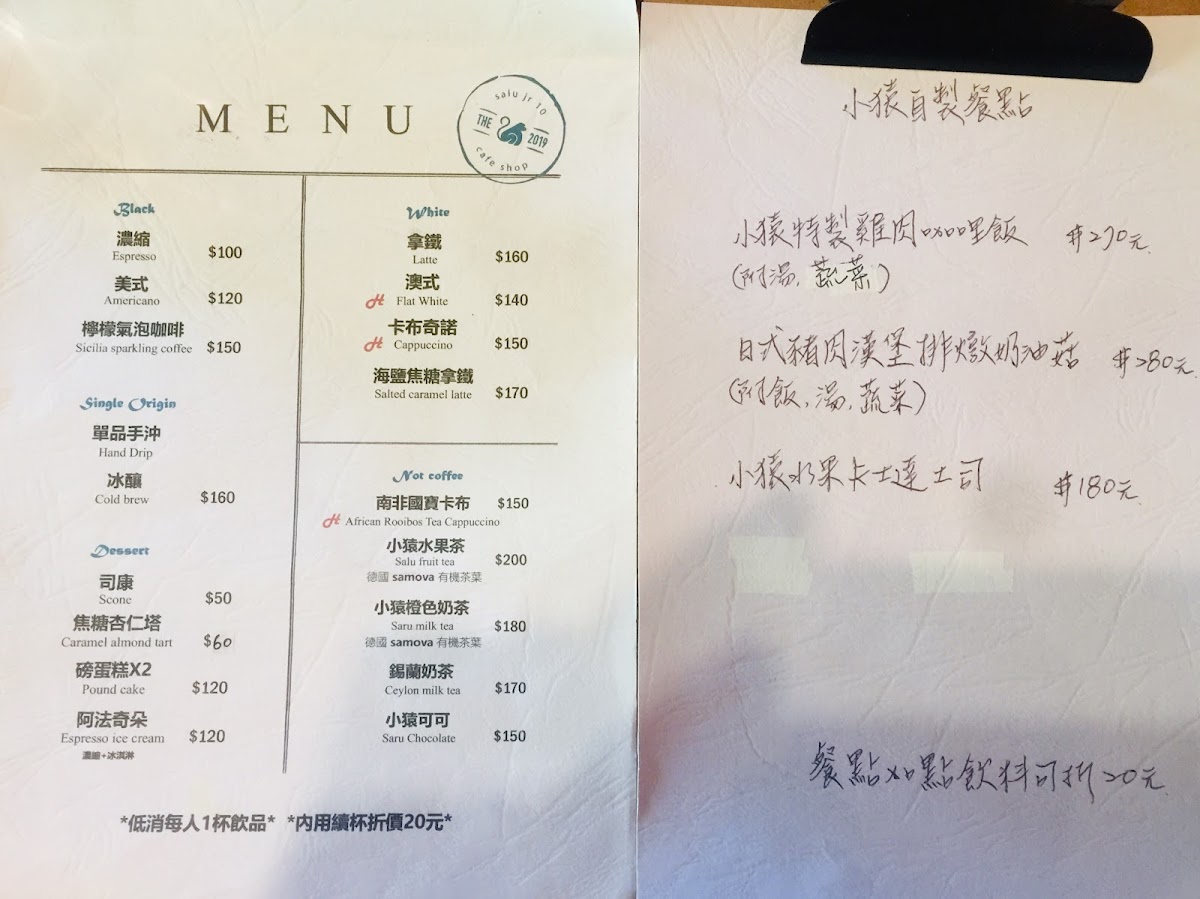 MENU
salu jr 10
THE 2019
cafe shop
Black
濃縮
Espresso $100
美式
Americano $120
檸檬氣泡咖啡
Sicilia sparkling coffee $150
Single Origin
單品手沖
Hand Drip
冰釀
Cold brew $160
Dessert
司康
Scone $50
焦糖杏仁塔
Caramel almond tart $60
磅蛋糕X2
Pound cake $120
阿法奇朵
Espresso ice cream $120
濃縮+冰淇淋
White
拿鐵
Latte $160
澳式
H Flat White $140
卡布奇諾
H Cappuccino $150
海鹽焦糖拿鐵
Salted caramel latte $170
Not coffee
南非國寶卡布 $150
H African Rooibos Tea Cappuccino
小猿水果茶
Salu fruit tea $200
德國 samova 有機茶葉
小猿橙色奶茶
Saru milk tea $180
德國 samova 有機茶葉
錫蘭奶茶
Ceylon milk tea $170
小猿可可
Saru Chocolate $150
*低消每人1杯飲品* *內用續杯折價20元*
小猿自製餐點
小猿特製雞肉咖哩飯 #270元
(附湯,蔬菜)
日式豬肉漢堡排燉奶油菇 #280元
(附飯,湯,蔬菜)
小猿水果卡士達土司 #180元
餐點如點飲料可折20元